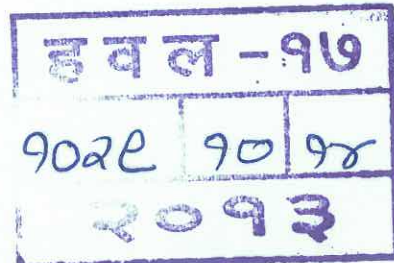 हवल - १७
१०२९ १० १४
२०१३